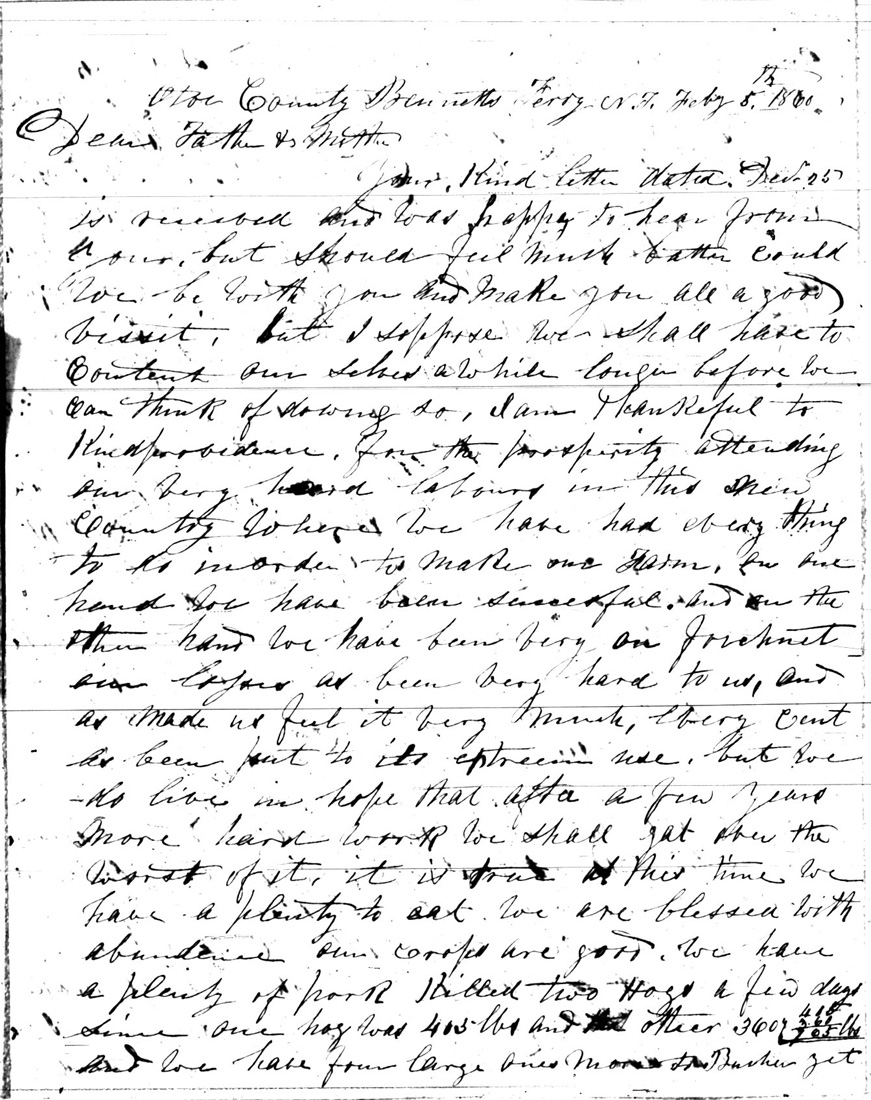 Otoe County Bennetts Ferry N.T. Feby 5th 1860
Dear Father & Mother
Your Kind letter dated Dec. 25
is received and was happy to hear from
your, but should feel much batter could
We be With you and Make you all a good
vissit, but I soppose We shall have to
Content our selves a While longer before We
Can think of dowing so, I am thankeful to
Kind providence, for the prosperity attending
our very heard labours in this new
Country Where We have had every thing
to do in order to make one Farm, on one
hand We have been sucessful, and on the
other hand We have been very on forchnet
our losses as been very hard to us, and
as made us feel it very Much, every Cent
as been put to its extreem use, but We
do live in hope that after a few years
More hard work We shall gat over the
Worst of it, it is true at this time We
have a plenty to eat We are blessed with
abundence our crops are good, We have
a plenty of pork Killed two Hogs a few days
since one hog was 405 lbs and other 360 765 lbs
and We have four large ones More to Bucher yet